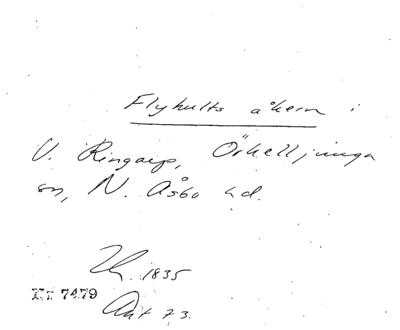 Flyhults åkern i
V. Ringarp, Örkelljunga
sn, N. Åsbo hd.
1835
Nr 7479
Akt 73.